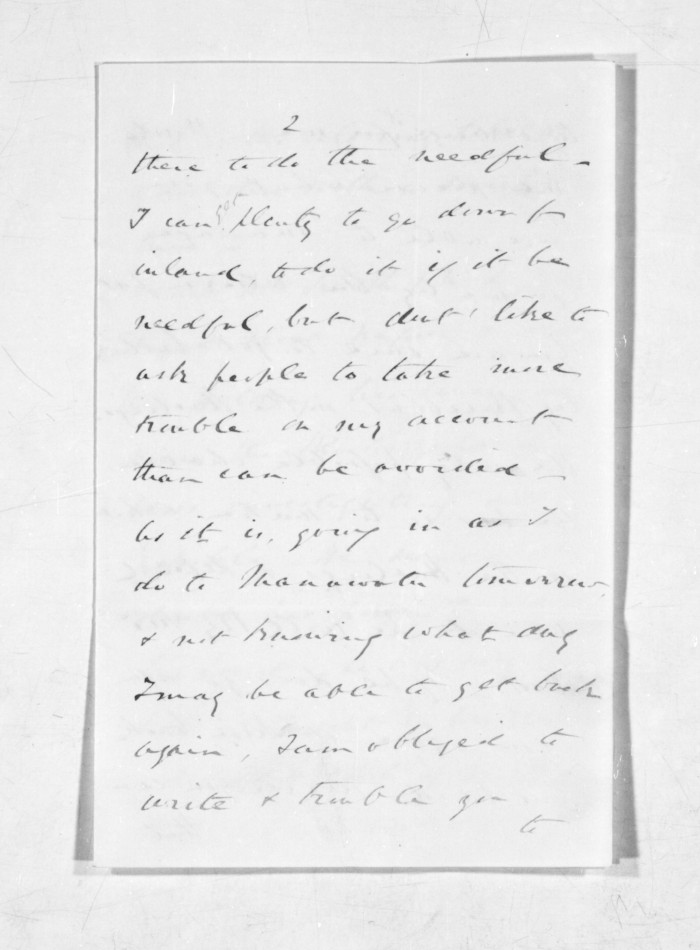 2
there to do the needful -
I can get plenty to go down &
inland to do it if it be
needful, but dont like to
ask people to take more
trouble on my account
than can be avoided -
As it is, going in as I
do to Manawatu tomorrow,
& not knowing what day
I may be able to get back
again, I am obliged to
write & trouble you
to